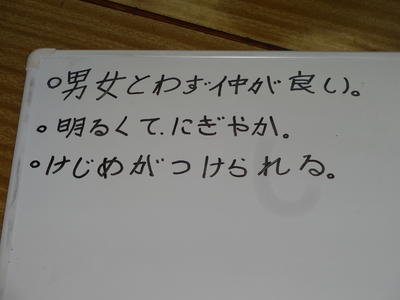 ○男女とわず仲が良い。
○明るくて、にぎやか。
○けじめがつけられる。